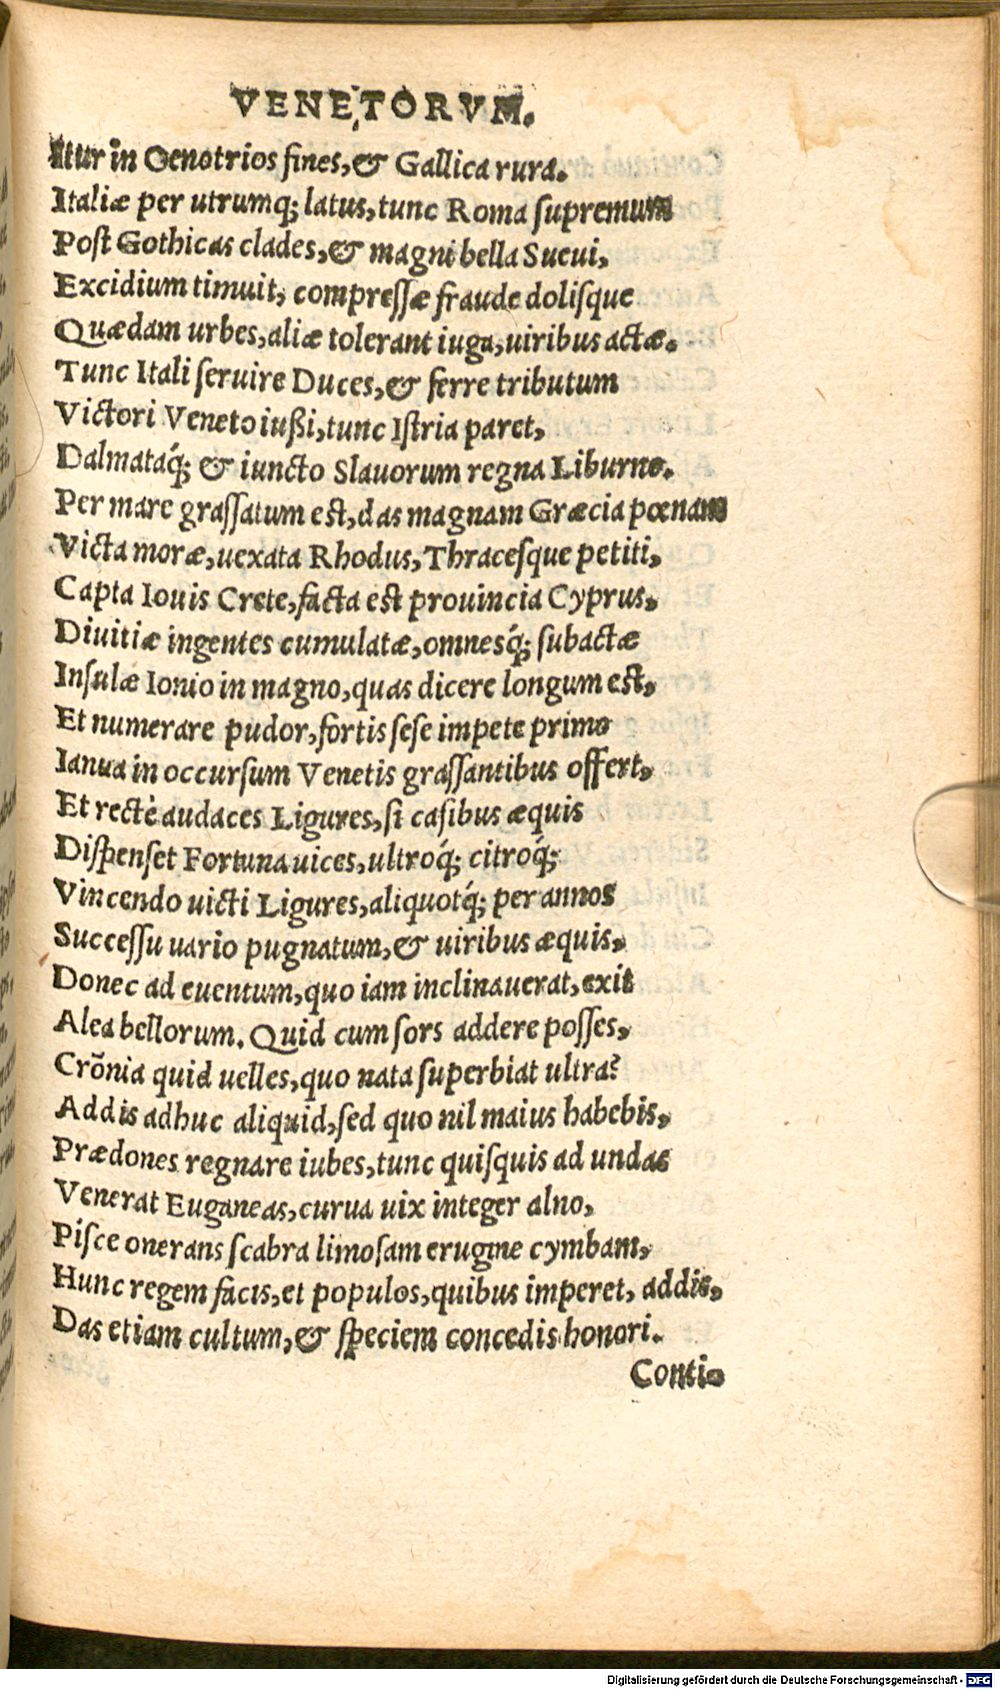 VENETORVM.
Itur in Oenotrios fines, & Gallica rura.
Italiæ per utrumq; latus, tunc Roma supremum
Post Gothicas clades, & magni bella Sueui,
Excidium timuit, compressæ fraude dolisque
Quædam urbes, aliæ tolerant iuga, uiribus actæ.
Tunc Itali seruire Duces, & ferre tributum
Victori Veneto iußi, tunc Istria paret,
Dalmataq́; & iuncto Slauorum regna Liburno.
Per mare grassatum est, das magnam Græcia pœnam
Victa moræ, uexata Rhodus, Thracesque petiti,
Capta Iouis Crete, facta est prouincia Cyprus,
Diuitiæ ingentes cumulatæ, omnesq́; subactæ
Insulæ Ionio in magno, quas dicere longum est,
Et numerare pudor, fortis sese impete primo
Ianua in occursum Venetis grassantibus offert,
Et rectè audaces Ligures, si casibus æquis
Dispenset Fortuna uices, ultroq́; citroq́;
Vincendo uicti Ligures, aliquotq́; per annos
Successu uario pugnatum, & uiribus æquis,
Donec ad euentum, quo iam inclinauerat, exit
Alea bellorum. Quid cum sors addere posses,
Crōnia quid uelles, quo nata superbiat ultra?
Addis adhuc aliquid, sed quo nil maius habebis,
Prædones regnare iubes, tunc quisquis ad undas
Venerat Euganeas, curua uix integer alno,
Pisce onerans scabra limosam erugine cymbam,
Hunc regem facis, et populos, quibus imperet, addis,
Das etiam cultum, & speciem concedis honori.
Conti-
Digitalisierung gefördert durch die Deutsche Forschungsgemeinschaft - DFG